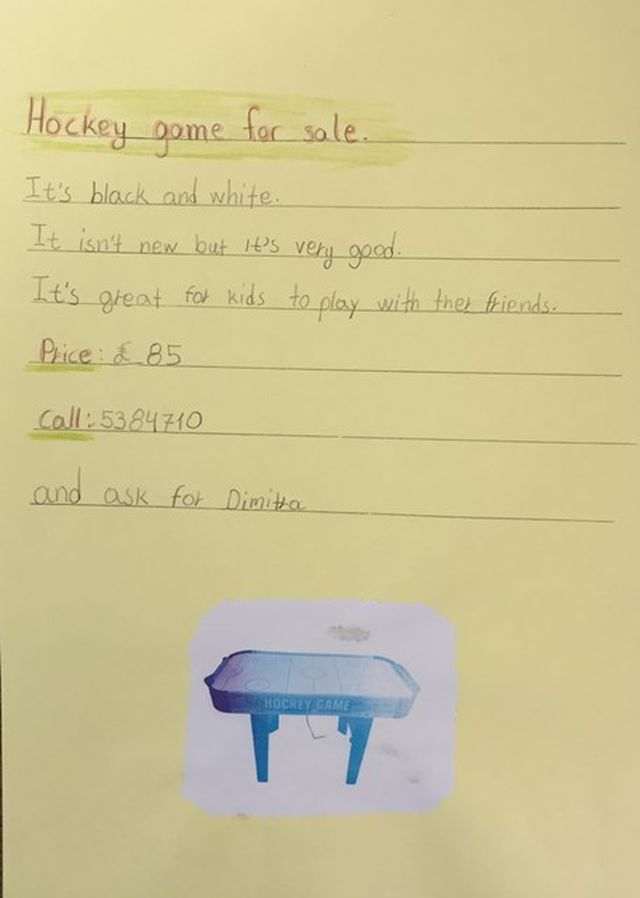 Hockey game for sale.
It's black and white.
It isn't new but it's very good.
It's great for kids to play with ther friends.
Price: £ 85
Call: 5384710
and ask for Dimitra
HOCKEY GAME